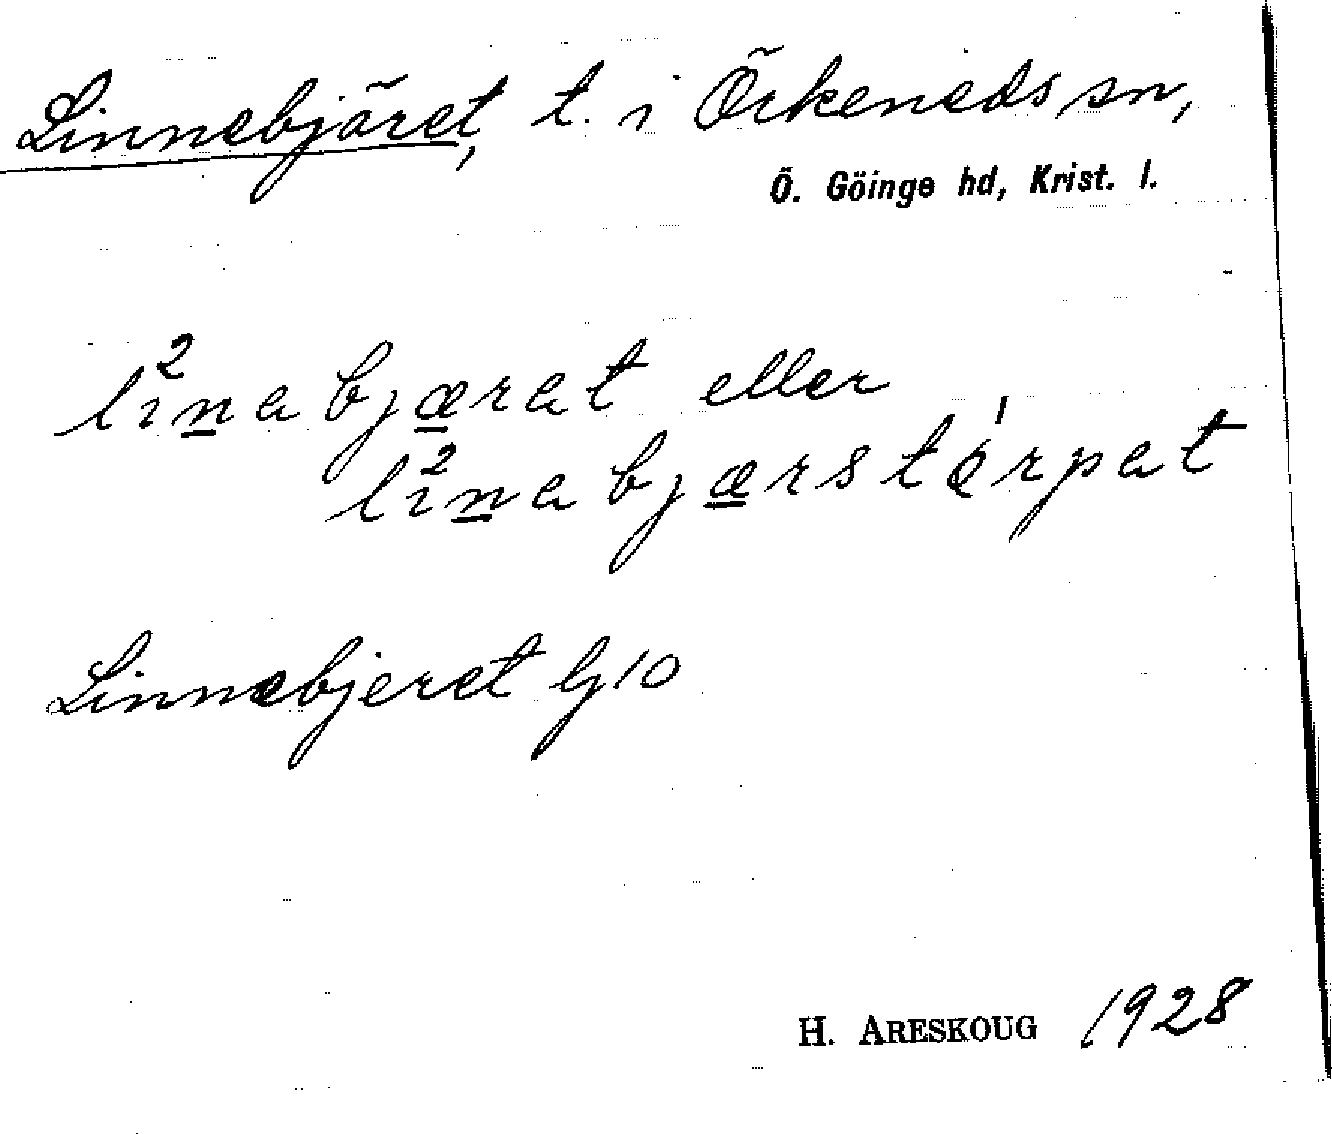 Linnebjäret, t. i Örkeneds sn,
Ö. Göinge hd, Krist. l.
li²nabjærat eller
li²nabjærstórpat
Linnebjeret Gj10
H. ARESKOUG 1928